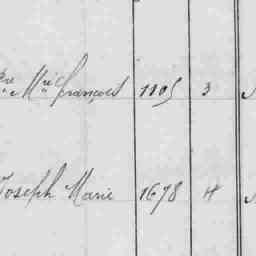 Mie françois 1105 3
Joseph Marie 1678 4